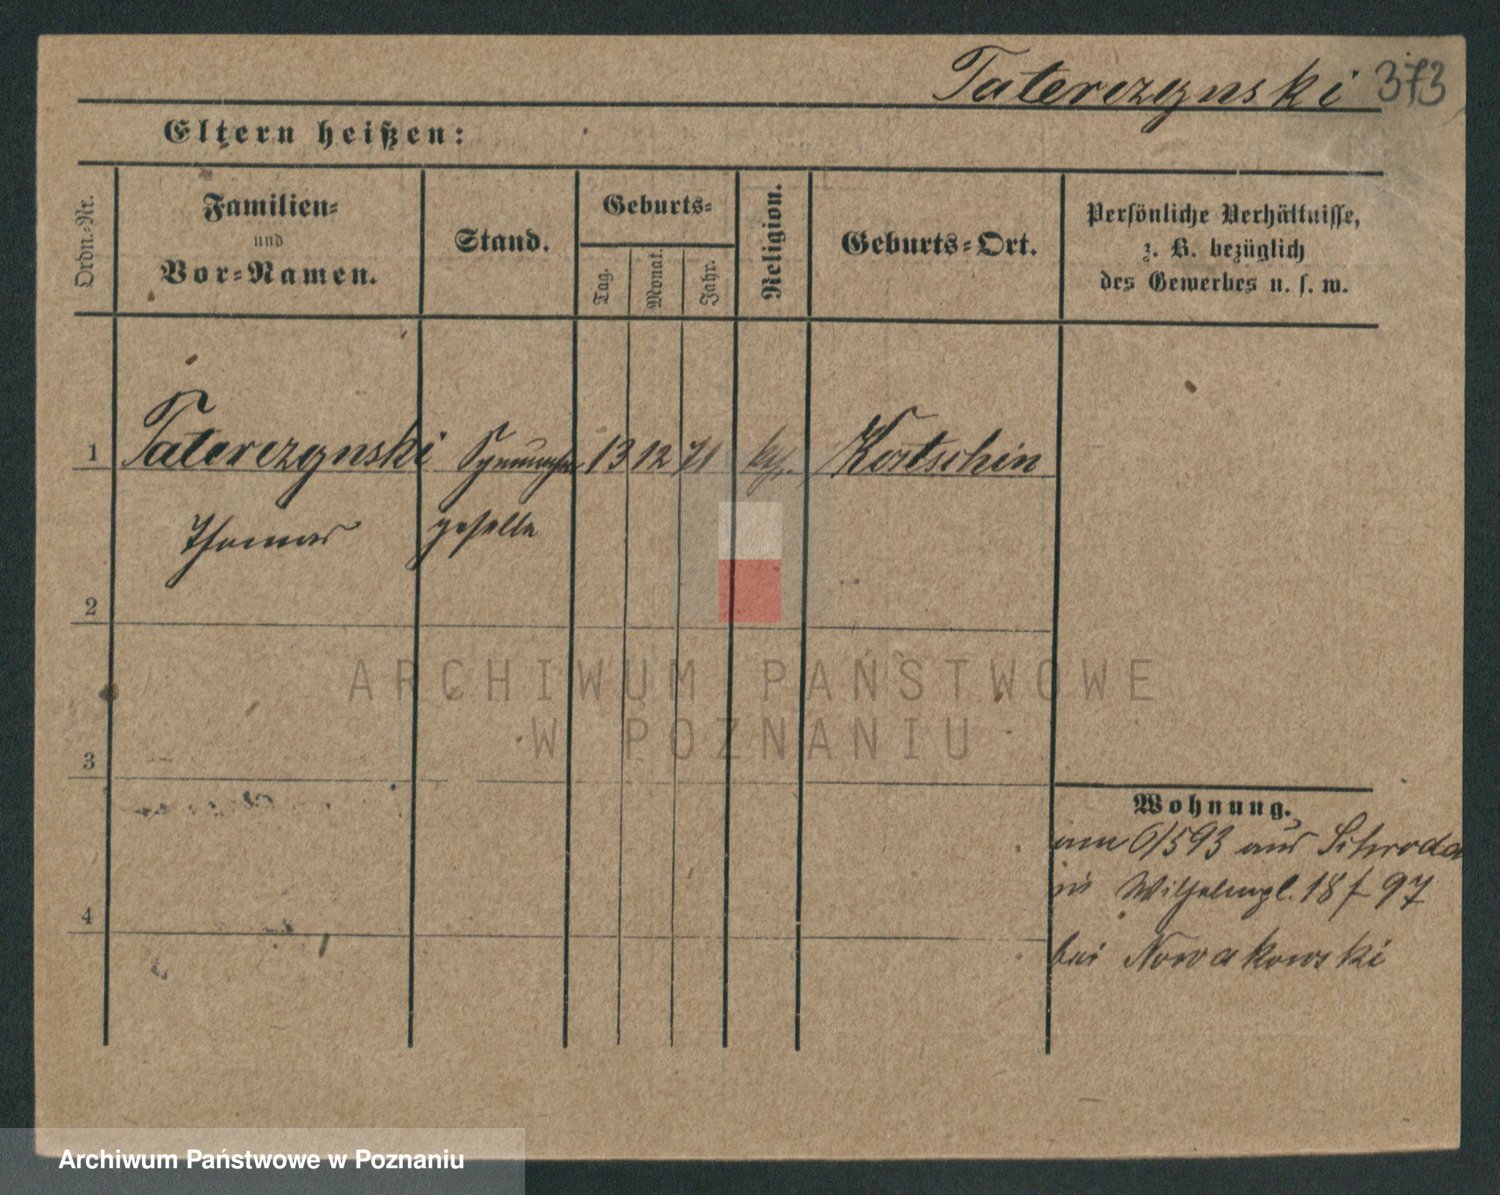 Taterczynski 373
Eltern heißen:
Ordn.-Nr.
Familien-
und
Vor-Namen.
Stand.
Geburts-
Tag.
Monat.
Jahr.
Religion.
Geburts-Ort.
Persönliche Verhältnisse,
z. B. bezüglich
des Gewerbes u. s. w.
1 Taterczynski 13 12 71 Kortschin
Thomas geselle
2
3
4
Wohnung.
am 6/593 aus Schroda
in Wilhelmpl. 18 f 97
bei Nowakowski
ARCHIWUM PAŃSTWOWE
W POZNANIU
Archiwum Państwowe w Poznaniu